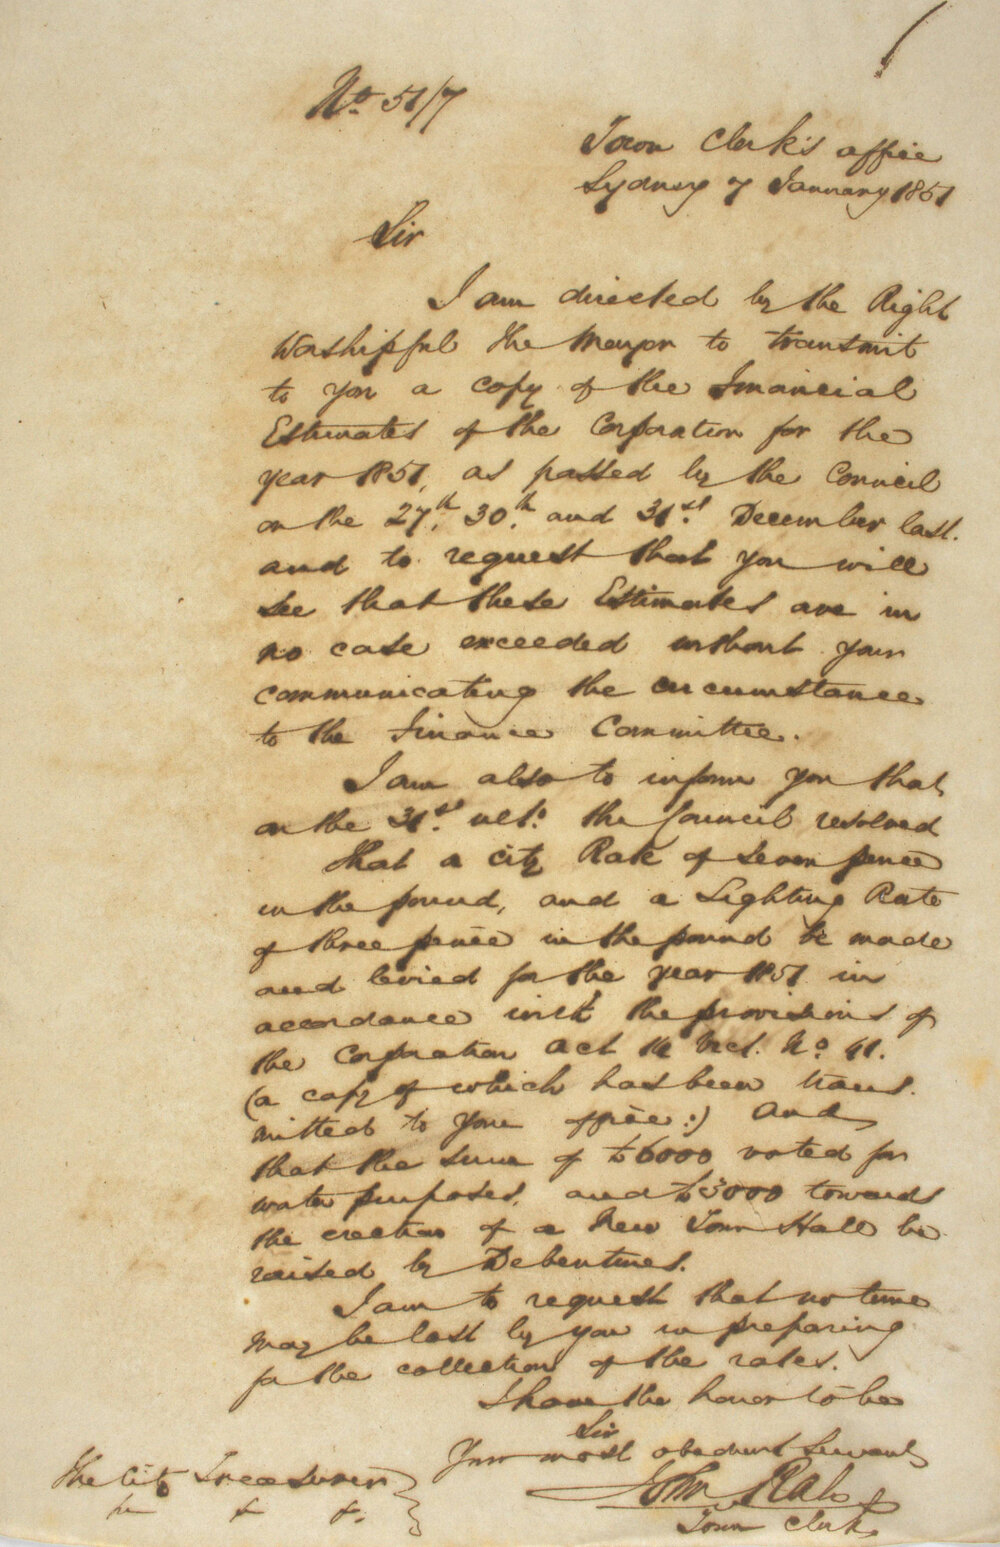 No. 51/7
Town Clerk's office
Sydney 7 January 1851
Sir
I am directed by the Right
Worshipful the Mayor to transmit
to you a copy of the Financial
Estimates of the Corporation for the
year 1851, as passed by the Council
on the 27th, 30th. and 31st. December last.
and to request that you will
see that these Estimates are in
no case exceeded without your
communicating the circumstance
to the Finance Committee.
I am also to inform you that
on the 31st. ulto. the Council resolved
that a city Rate of seven pence
in the pound, and a Lighting Rate
of three pence in the pound be made
and levied for the year 1851 in
accordance with the provisions of
the Corporation Act 14 Vict. No. 41.
(a copy of which has been trans
mitted to your office:) and
that the sum of £6000 voted for
water purposes, and £5000 towards
the erection of a New Town Hall be
raised by Debentures.
I am to request that no time
may be lost by you in preparing
for the collection of the rates.
I have the honor to be
Sir
Your most obedient Servant
John Rae
Town Clerk
The City Treasurer
&c &c &c.